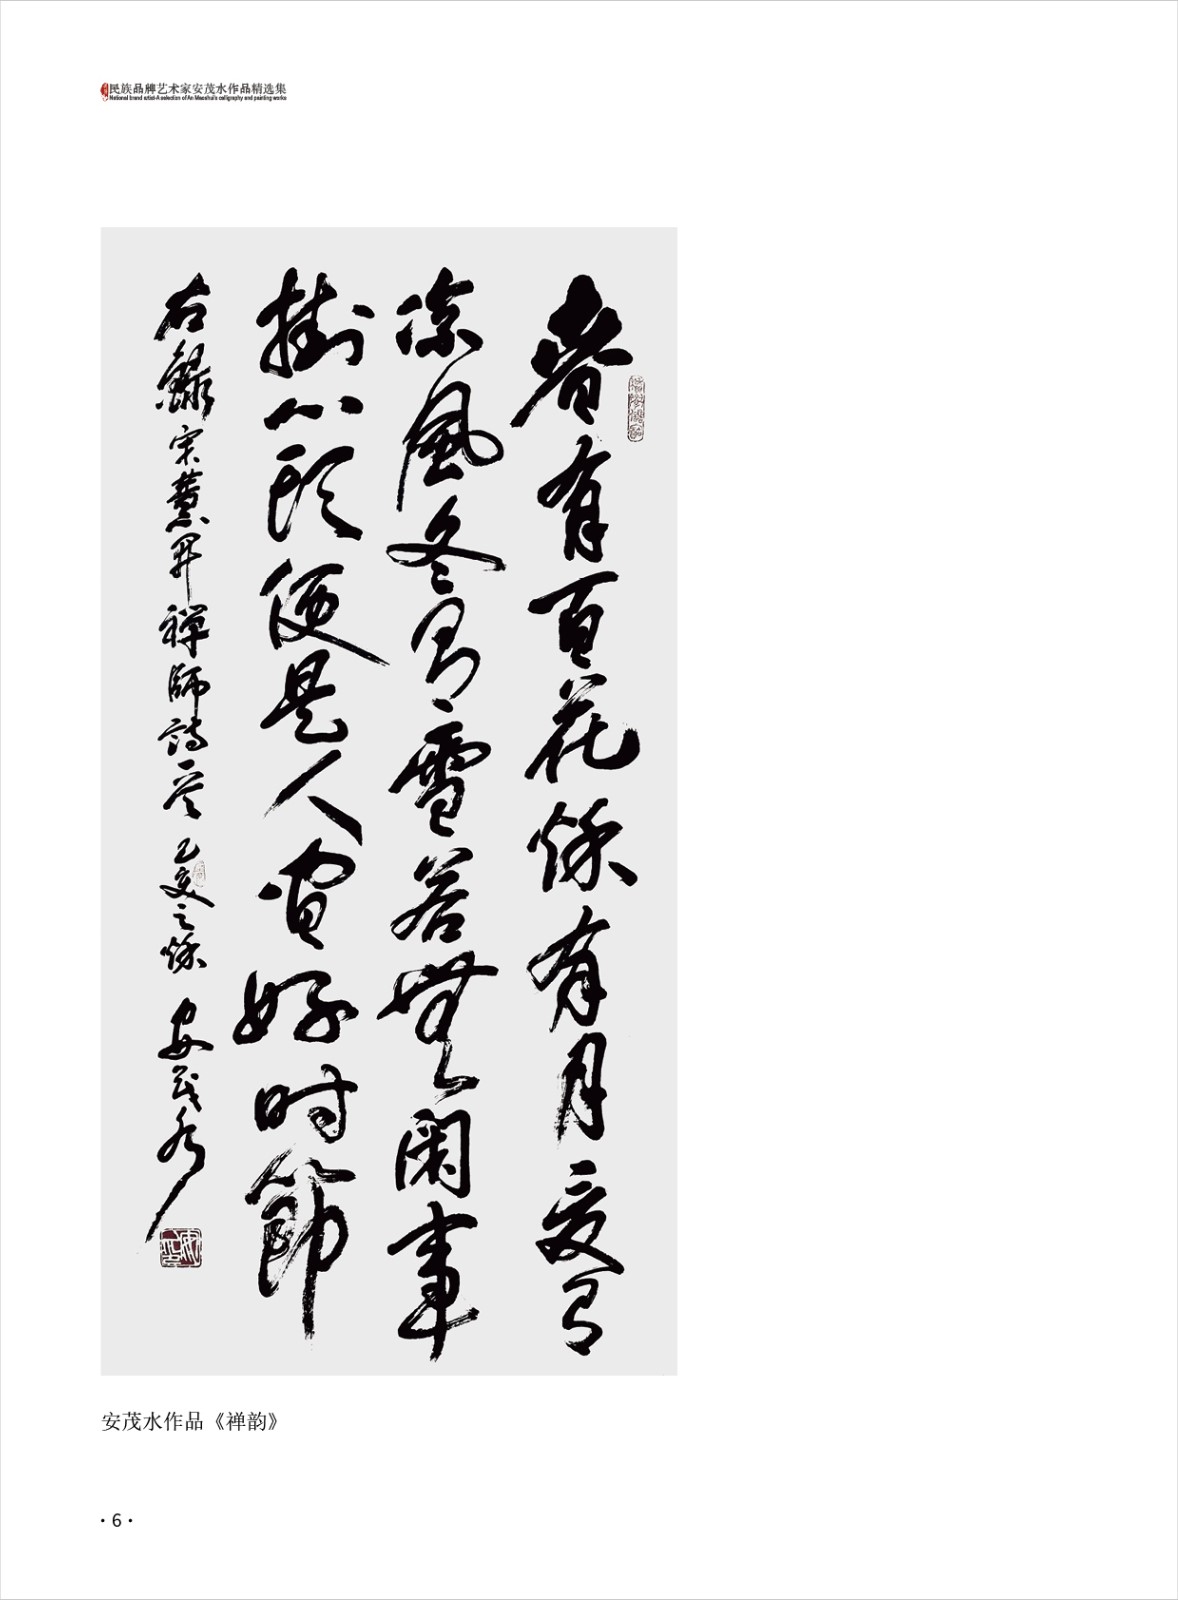 民族品牌艺术家安茂水作品精选集
National brand artist-A selection of An Maoshui's calligraphy and painting works
春有百花秋有月夏有
凉風冬有雪若無闲事
掛心頭便是人间好时節
右錄宋慧开禪師詩一首 乙亥之秋 安茂水
安茂水作品《禅韵》
·6·